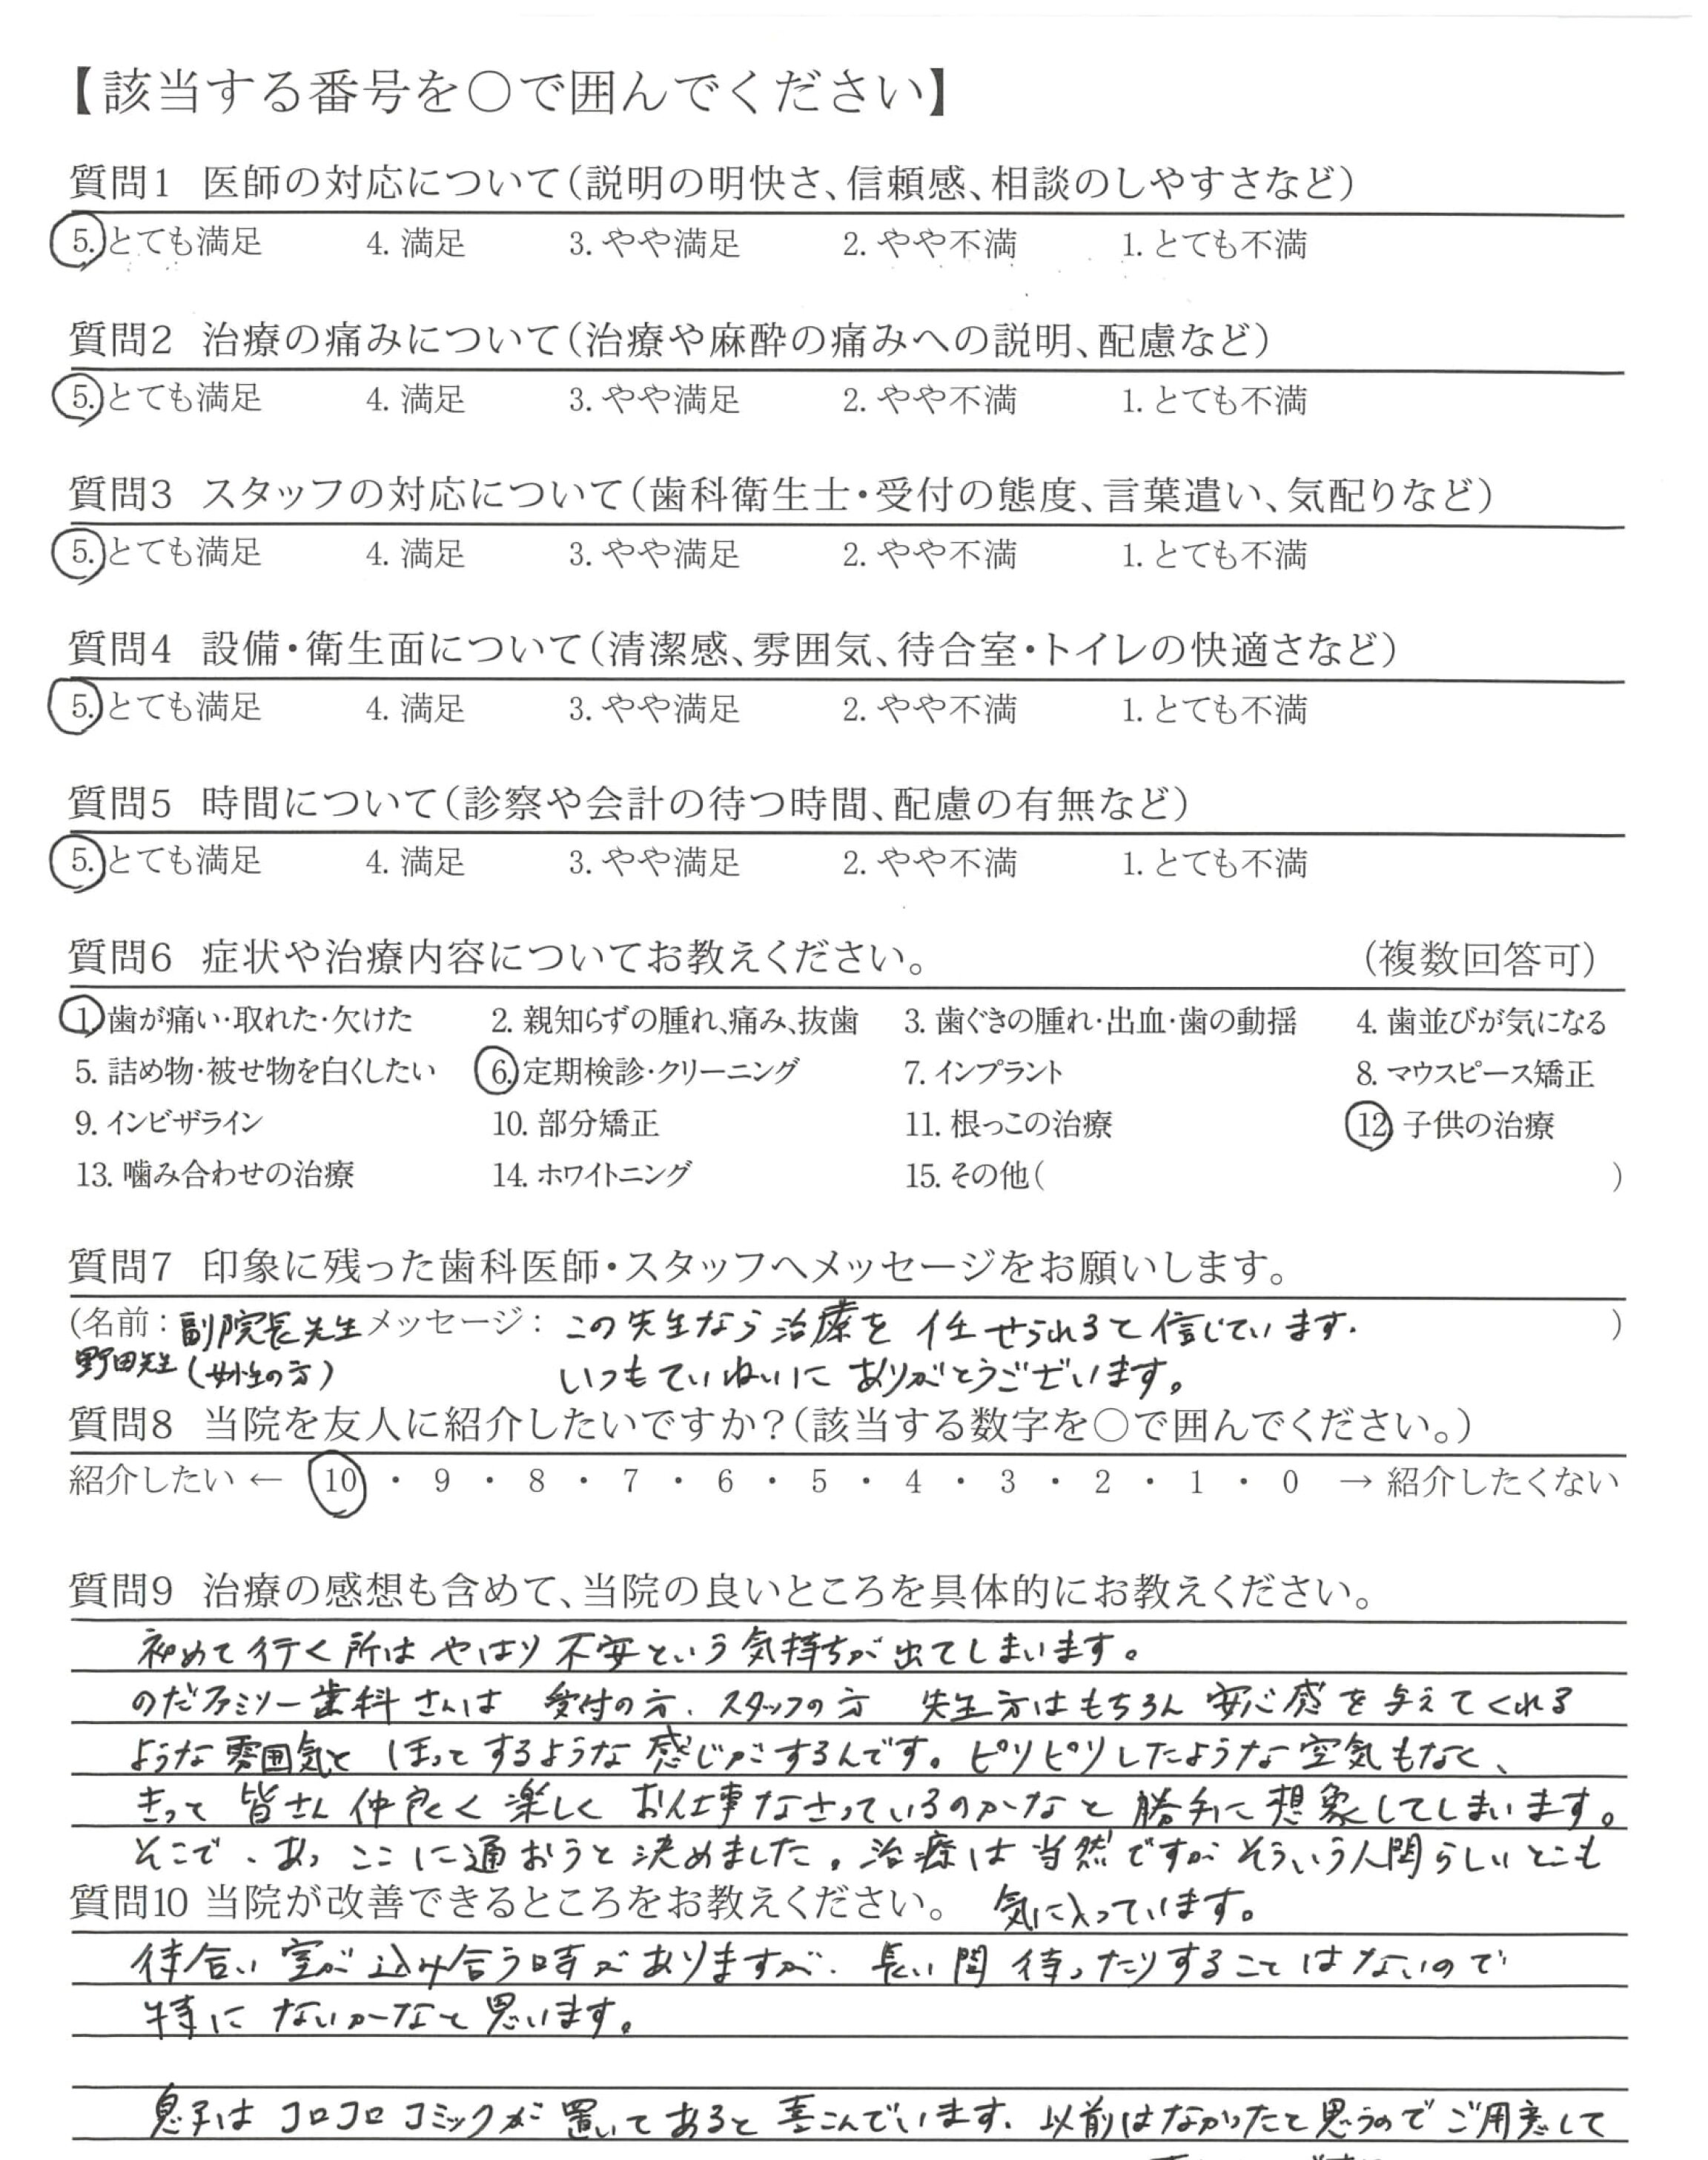 【該当する番号を○で囲んでください】
質問1 医師の対応について(説明の明快さ、信頼感、相談のしやすさなど)
5. とても満足 4. 満足 3. やや満足 2. やや不満 1. とても不満
質問2 治療の痛みについて(治療や麻酔の痛みへの説明、配慮など)
5. とても満足 4. 満足 3. やや満足 2. やや不満 1. とても不満
質問3 スタッフの対応について(歯科衛生士・受付の態度、言葉遣い、気配りなど)
5. とても満足 4. 満足 3. やや満足 2. やや不満 1. とても不満
質問4 設備・衛生面について(清潔感、雰囲気、待合室・トイレの快適さなど)
5. とても満足 4. 満足 3. やや満足 2. やや不満 1. とても不満
質問5 時間について(診察や会計の待つ時間、配慮の有無など)
5. とても満足 4. 満足 3. やや満足 2. やや不満 1. とても不満
質問6 症状や治療内容についてお教えください。 (複数回答可)
1. 歯が痛い・取れた・欠けた 2. 親知らずの腫れ、痛み、抜歯 3. 歯ぐきの腫れ・出血・歯の動揺 4. 歯並びが気になる
5. 詰め物・被せ物を白くしたい 6. 定期検診・クリーニング 7. インプラント 8. マウスピース矯正
9. インビザライン 10. 部分矯正 11. 根っこの治療 12. 子供の治療
13. 噛み合わせの治療 14. ホワイトニング 15. その他( )
質問7 印象に残った歯科医師・スタッフへメッセージをお願いします。
(名前：副院長先生 メッセージ：この先生なら治療を任せられると信じています. )
野田先生(女性の方) いつもていねいにありがとうございます。
質問8 当院を友人に紹介したいですか？(該当する数字を○で囲んでください。)
紹介したい ← 10 ・ 9 ・ 8 ・ 7 ・ 6 ・ 5 ・ 4 ・ 3 ・ 2 ・ 1 ・ 0 → 紹介したくない
質問9 治療の感想も含めて、当院の良いところを具体的にお教えください。
初めて行く所はやはり不安という気持ちが出てしまいます。
のだファミリー歯科さんは 受付の方、スタッフの方 先生方はもちろん 安心感を与えてくれる
ような雰囲気と ほっとするような感じがするんです。ピリピリしたような空気もなく、
きっと皆さん仲良く楽しくお仕事なさっているのかーなと勝手に想象してしまいます。
そこで、あっここに通おうと決めました。治療は当然ですがそういう人間らしいとこも
質問10 当院が改善できるところをお教えください。 気に入っています。
待合い室が込み合う時がありますが、長い間待ったりすることはないので
特にないかーなと思います。
息子はコロコロコミックが置いてあると喜こんでいます、以前はなかったと思うのでご用意して